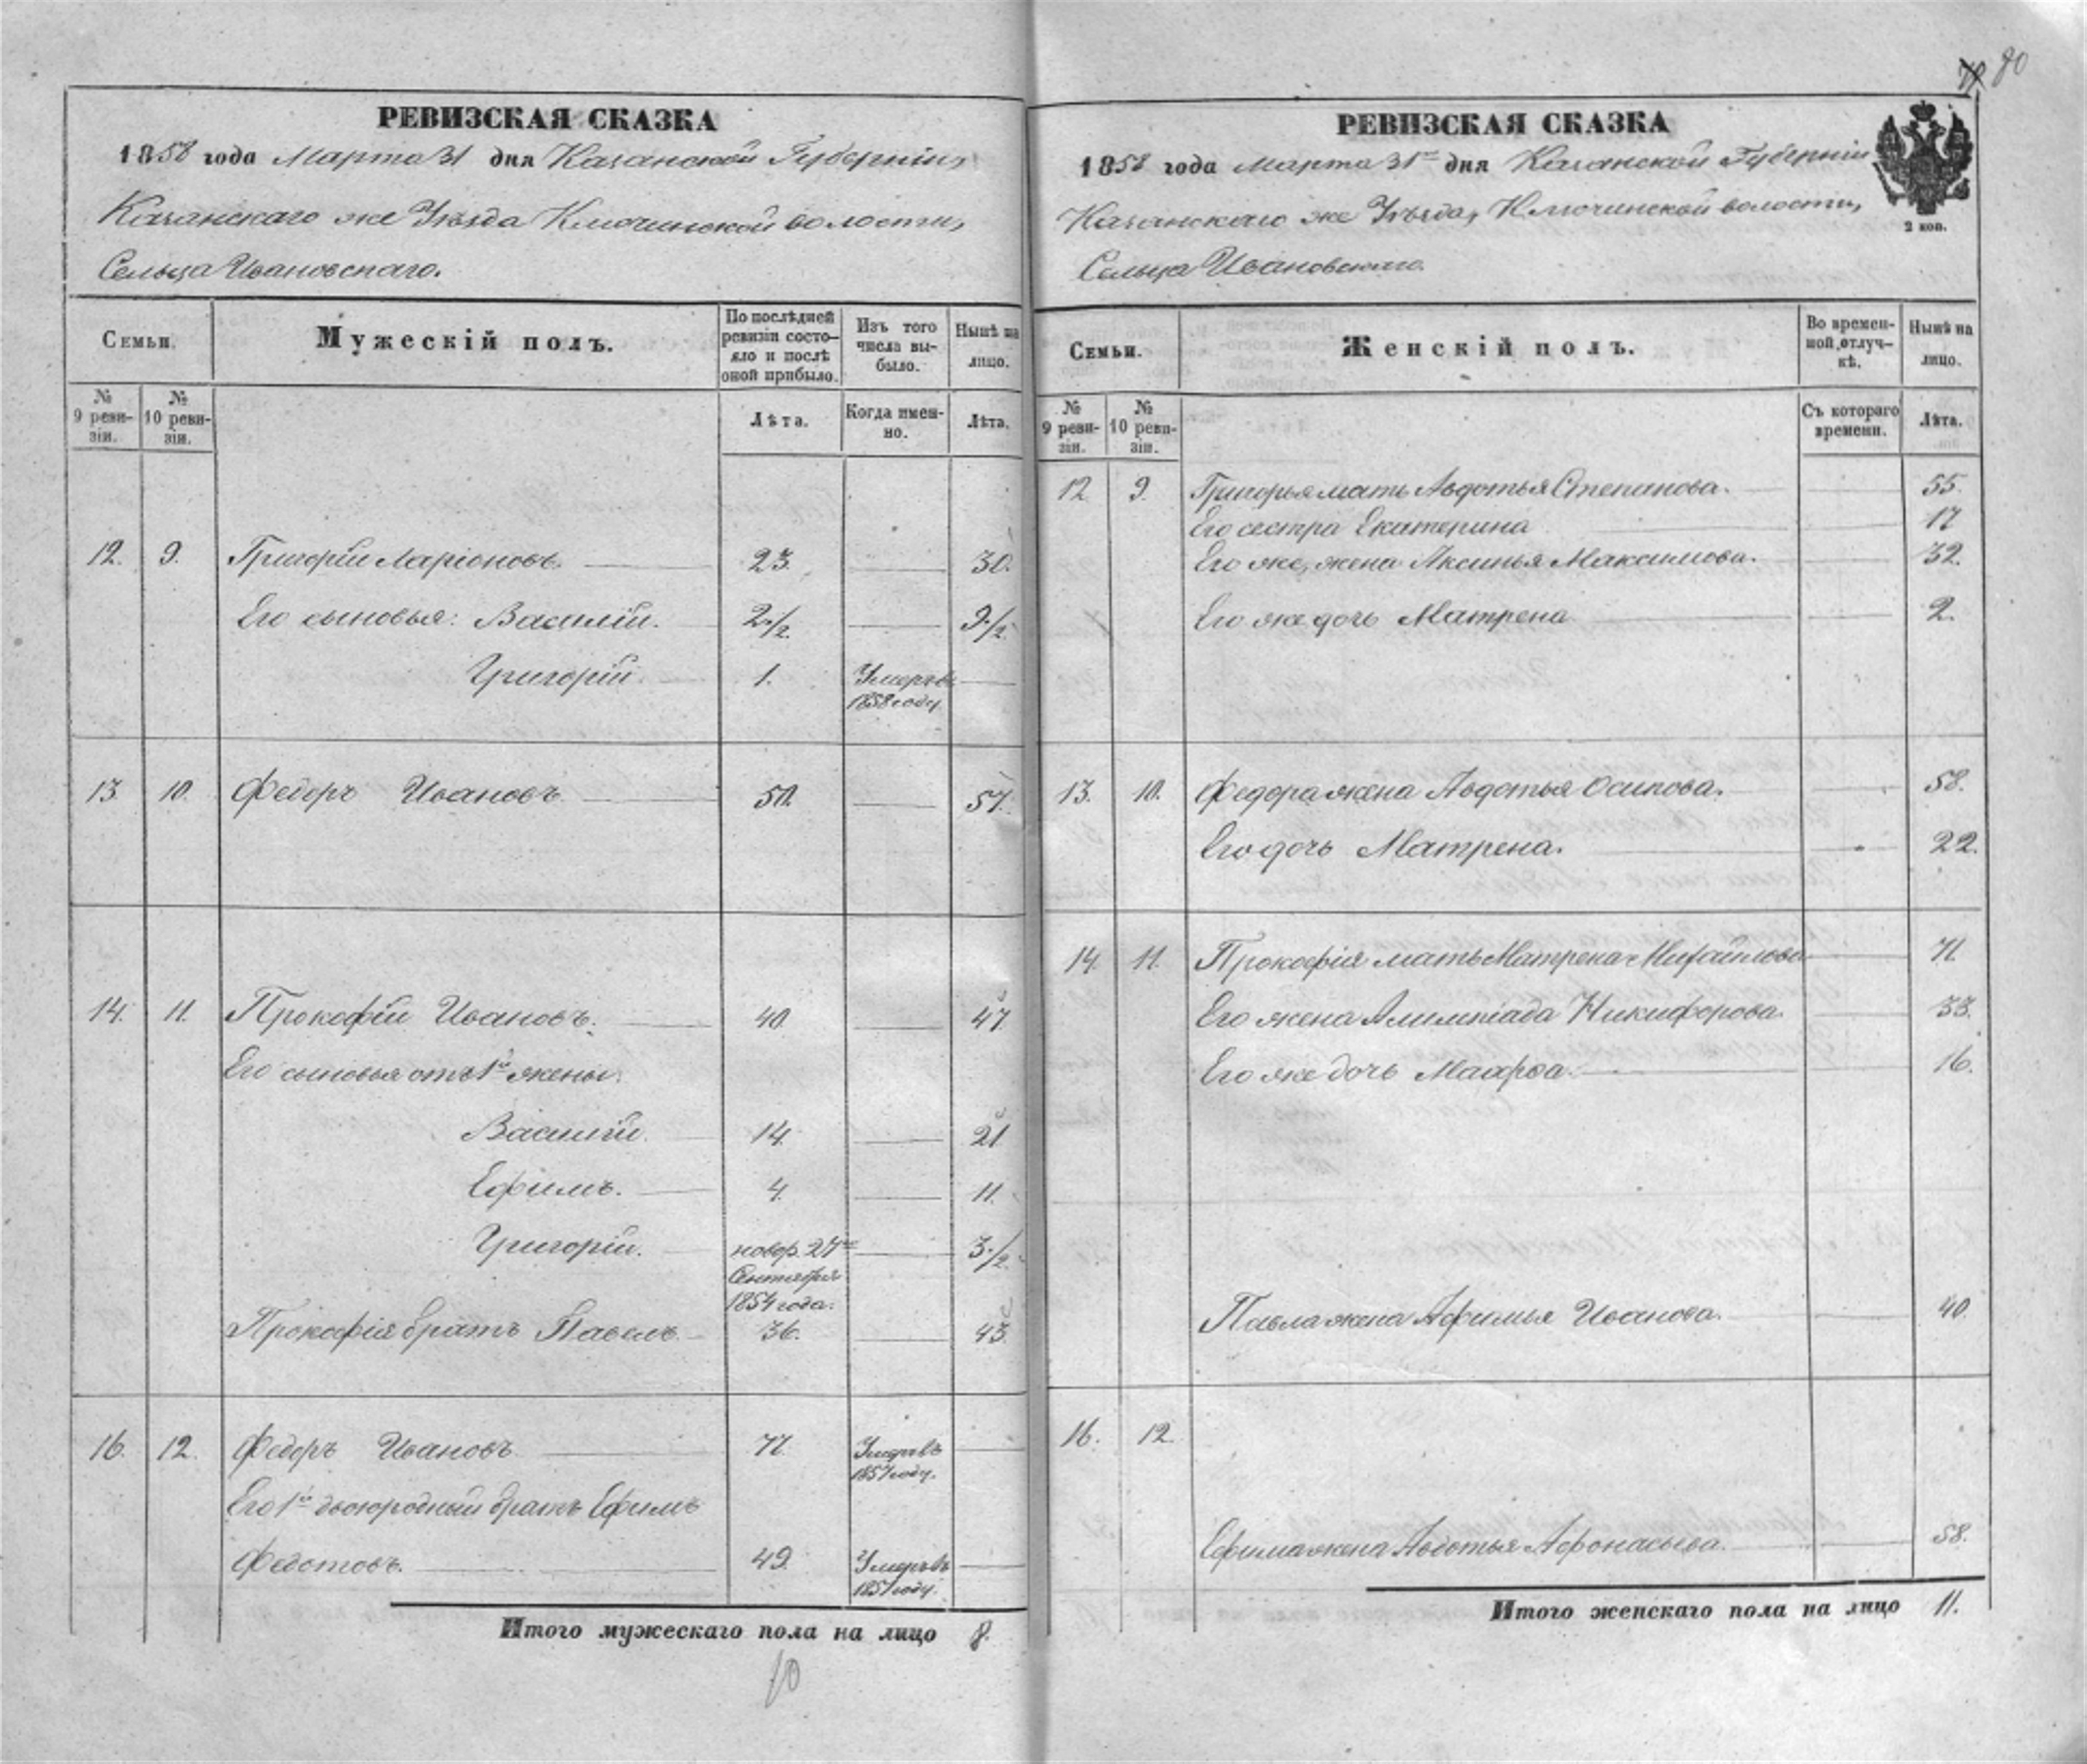 80
РЕВИЗСКАЯ СКАЗКА
1858 года Марта 31 дня Казанской Губерніи,
Казанскаго же Уѣзда Ключинской волости,
Сельца Ивановскаго.
Семьи.
Мужескій полъ.
По послѣдней ревизіи состояло и послѣ оной прибыло.
Изъ того числа выбыло.
Нынѣ на лицо.
№ 9 ревизіи.
№ 10 ревизіи.
Лѣта.
Когда именно.
Лѣта.
12. 9. Григорій Ларіоновъ. 23. 30.
Его сыновья: Василій. 2 1/2 9 1/2
Григорій 1. Умеръ въ 1858 году
13 10. Федоръ Ивановъ 50. 57.
14. 11. Прокофій Ивановъ. 40. 47
Его сыновья отъ 1й жены:
Василій. 14. 21
Ефимъ. 4. 11.
Григорій. новор. 27го Сентября 1854 года. 3 1/2
Прокофія братъ Павелъ 36. 43.
16. 12. Федоръ Ивановъ 71. Умеръ въ 1857 году.
Его 1й двоюродный братъ Ефимъ
Федотовъ. 49. Умеръ въ 1857 году.
Итого мужескаго пола на лицо 8.
10
РЕВИЗСКАЯ СКАЗКА
1858 года Марта 31го дня Казанской Губерніи
Казанскаго же Уѣзда, Ключинской волости,
Сельца Ивановскаго.
2 коп.
Семьи.
Женскій полъ.
Во временной отлучкѣ.
Нынѣ на лицо.
№ 9 ревизіи.
№ 10 ревизіи.
Съ котораго времени.
Лѣта.
12 9. Григорья мать Авдотья Степанова. 55.
Его сестра Екатерина 17
Его же, жена Аксинья Максимова. 32.
Его же дочь Матрена 2.
13. 10. Федора жена Авдотья Осипова. 58.
Его дочь Матрена. 22.
14. 11. Прокофія мать Матрена Михайлова 71.
Его жена Алимпіада Никифорова. 33.
Его же дочь Мавра. 16.
Павла жена Афимья Иванова. 40.
16. 12.
Ефима жена Авдотья Афонасьева. 58.
Итого женскаго пола на лицо 11.